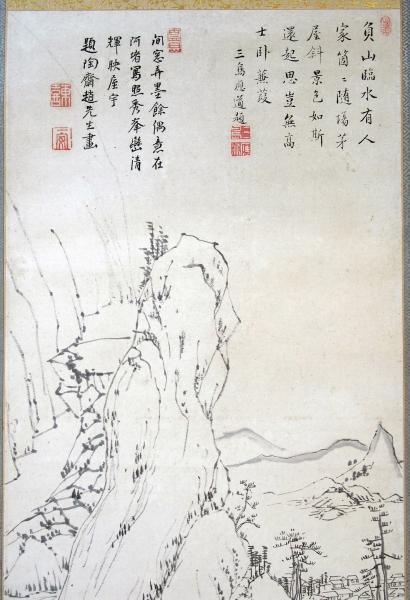 負山臨水有人
家箇〻随場茅
屋斜景色如斯
還起思豈無高
士卧蒹葭
三島應道題
間窓弄墨餘偶意在
阿堵写照秀峯巒清
輝映屋宇
題陶齋趙先生畫